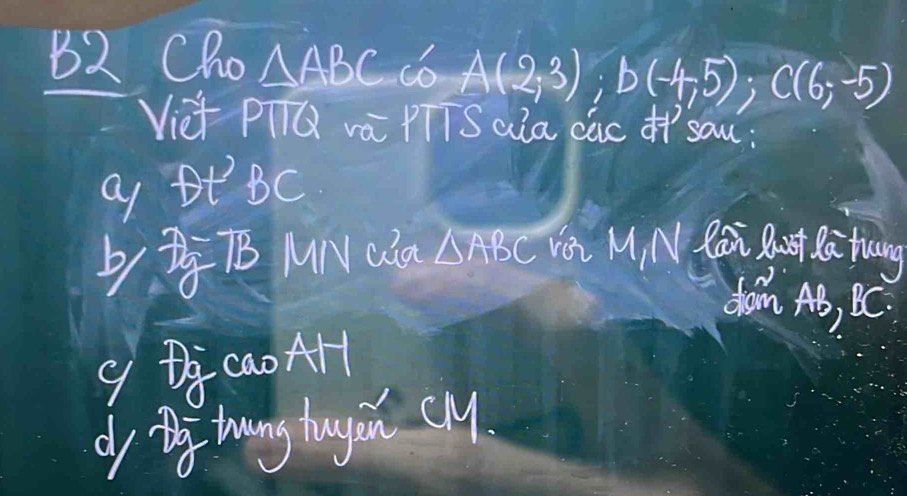 B2 Cho △ABC có A(2;3); B(-4;5); C(6;-5)
Viết PTTQ và PTTS của các đt' sau:
a/ Đt' BC.
b/ Đg TB MN của △ABC với M,N lần lượt là trung
điểm AB, BC.
c/ Đg cao AH
d/ Đg trung tuyến CM.